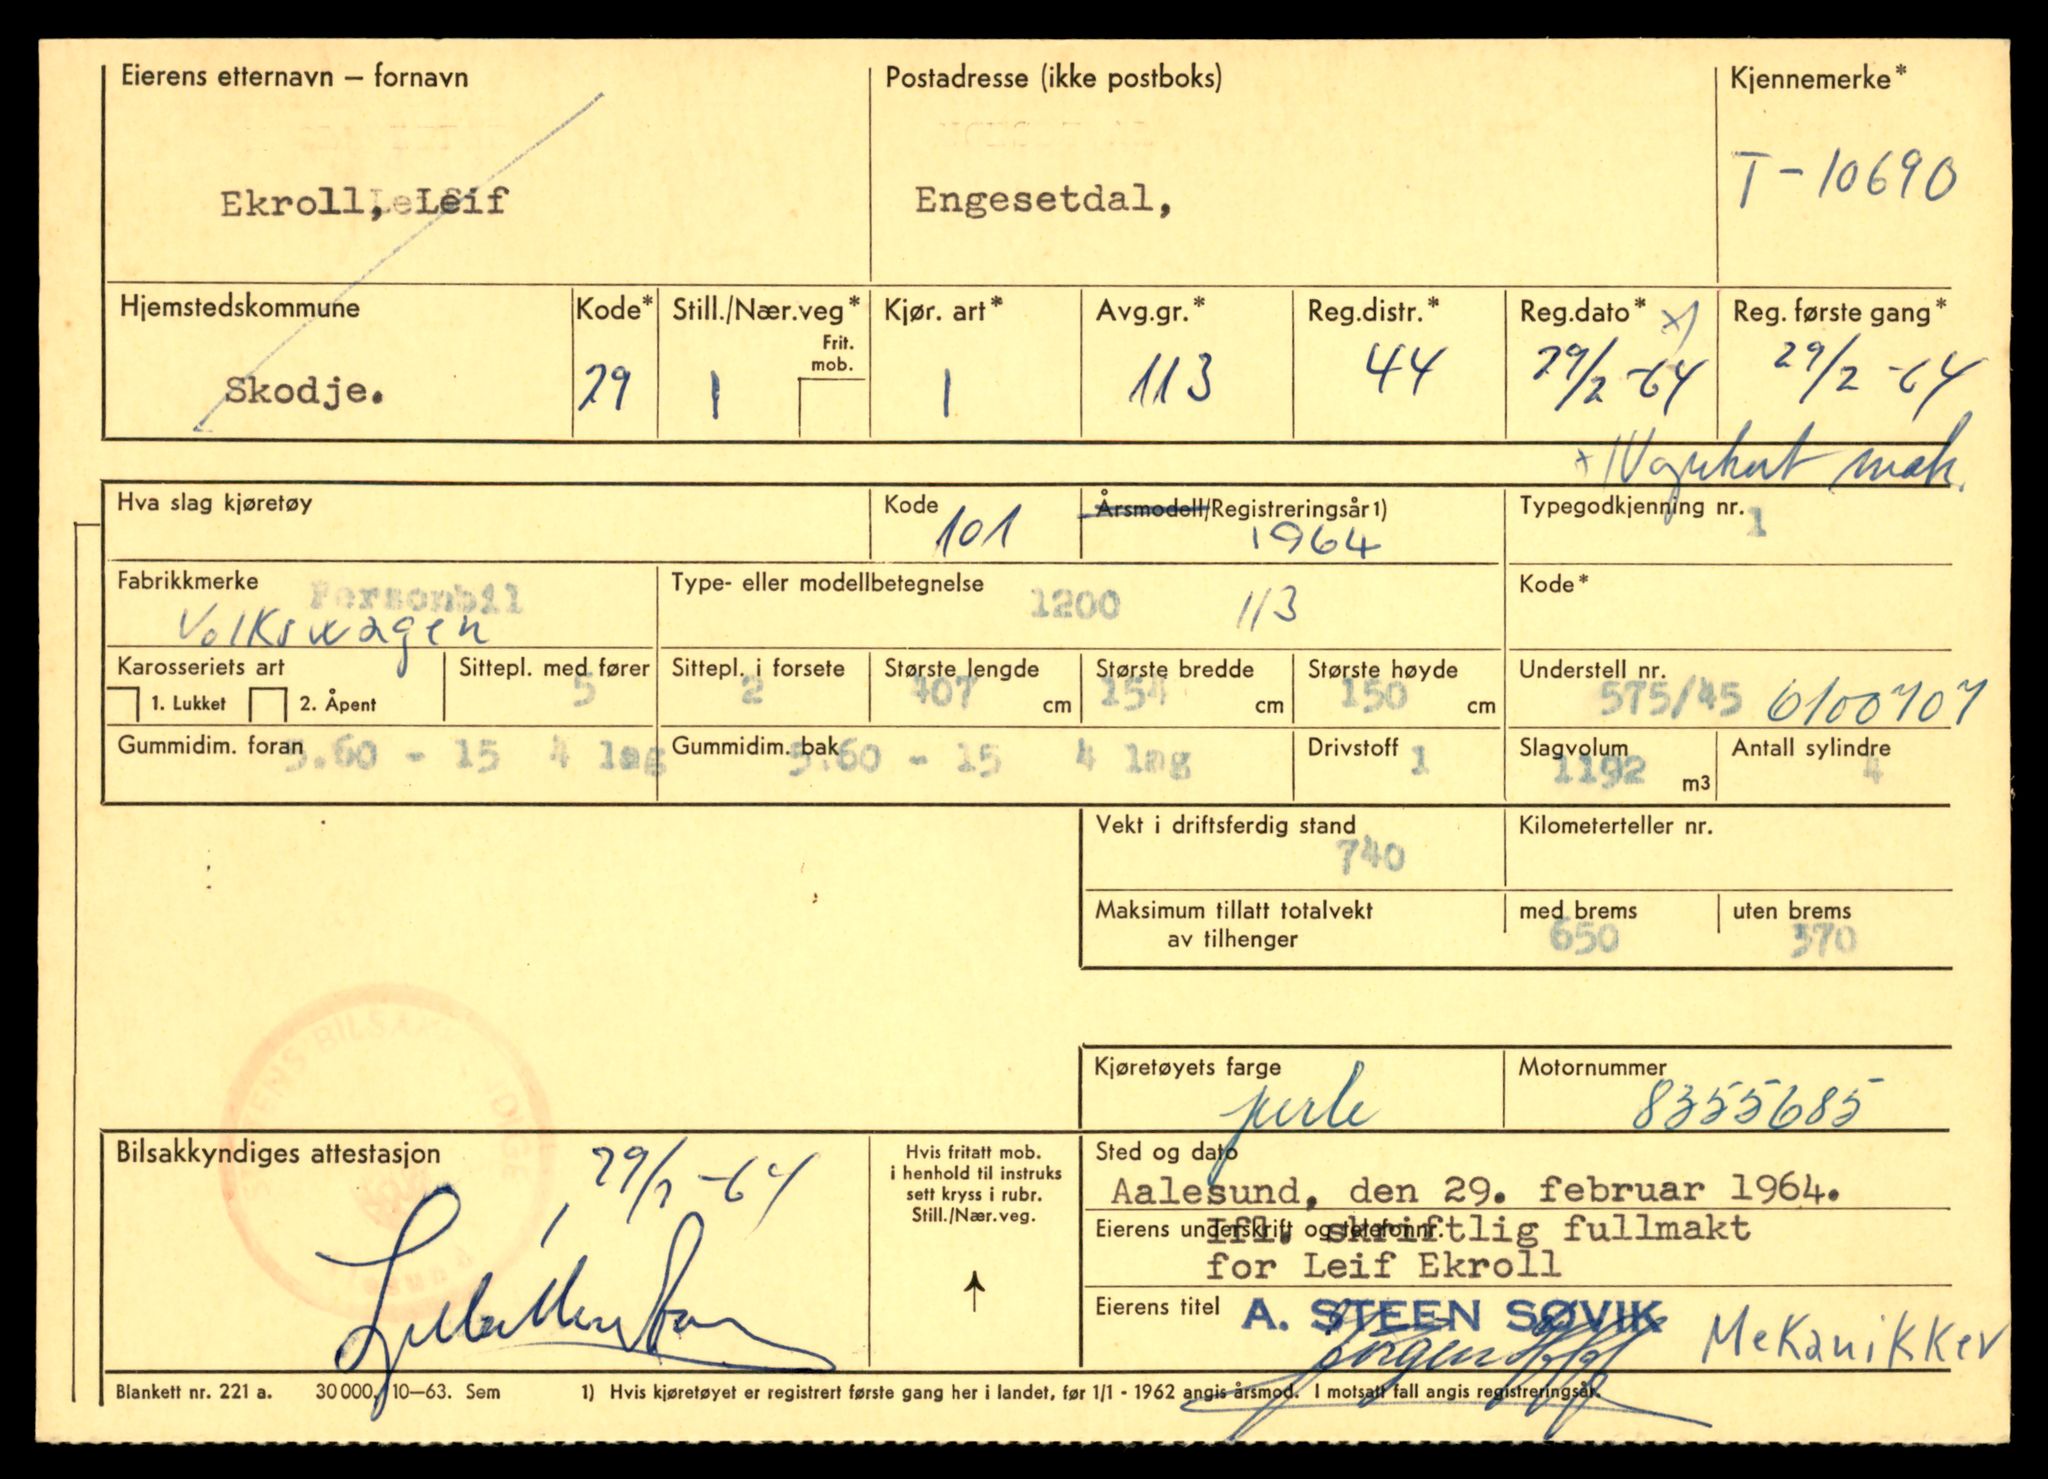 Eierens etternavn – fornavn
Postadresse (ikke postboks)
Kjennemerke*
Ekroll, Leif
Engesetdal,
T-10690
Hjemstedskommune
Kode*
Still./Nær.veg*
Frit. mob.
Kjør. art*
Avg.gr.*
Reg.distr.*
Reg.dato* x)
Reg. første gang*
Skodje.
29
1
1
113
44
29/2-64
29/2-64
Hva slag kjøretøy
Kode
101
Årsmodell/Registreringsår1)
1964
Typegodkjenning nr.
1
Fabrikkmerke
Personbil
Volkswagen
Type- eller modellbetegnelse
1200
113
Kode*
Karosseriets art
1. Lukket
2. Åpent
Sittepl. med fører
5
Sittepl. i forsete
2
Største lengde
407
cm
Største bredde
154
cm
Største høyde
150
cm
Understell nr.
575/45 6100707
Gummidim. foran
5.60 - 15 4 lag
Gummidim. bak
5.60 - 15 4 lag
Drivstoff
1
Slagvolum
1192
m3
Antall sylindre
4
Vekt i driftsferdig stand
740
Kilometerteller nr.
Maksimum tillatt totalvekt
av tilhenger
med brems
650
uten brems
370
Kjøretøyets farge
perle
Motornummer
8355685
Bilsakkyndiges attestasjon
29/2-64
Hvis fritatt mob.
i henhold til instruks
sett kryss i rubr.
Still./Nær.veg.
Sted og dato
Aalesund, den 29. februar 1964.
Eierens underskrift og telefonnr.
Ifl. skriftlig fullmakt
for Leif Ekroll
Eierens titel
A. STEEN SØVIK
Mekanikker
Blankett nr. 221 a. 30 000. 10–63. Sem
1) Hvis kjøretøyet er registrert første gang her i landet, før 1/1 - 1962 angis årsmod. I motsatt fall angis registreringsår.